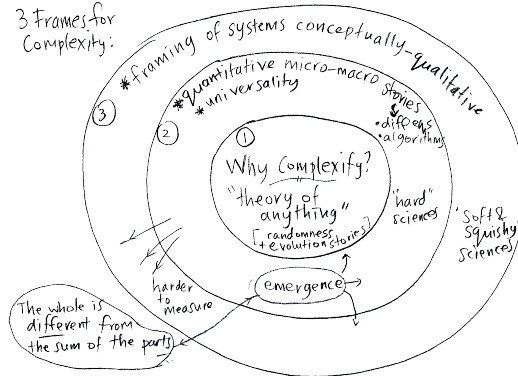 3 Frames for
Complexity:
*framing of systems conceptually-qualitative
③
*quantitative micro-macro stories
*universality
②
•diff eqs
•algorithms
①
Why Complexify?
"theory of
anything"
[randomness
+ evolution stories]
"hard"
sciences
"soft &
squishy
sciences"
harder
to
measure
emergence
The whole is
different from
the sum of the parts